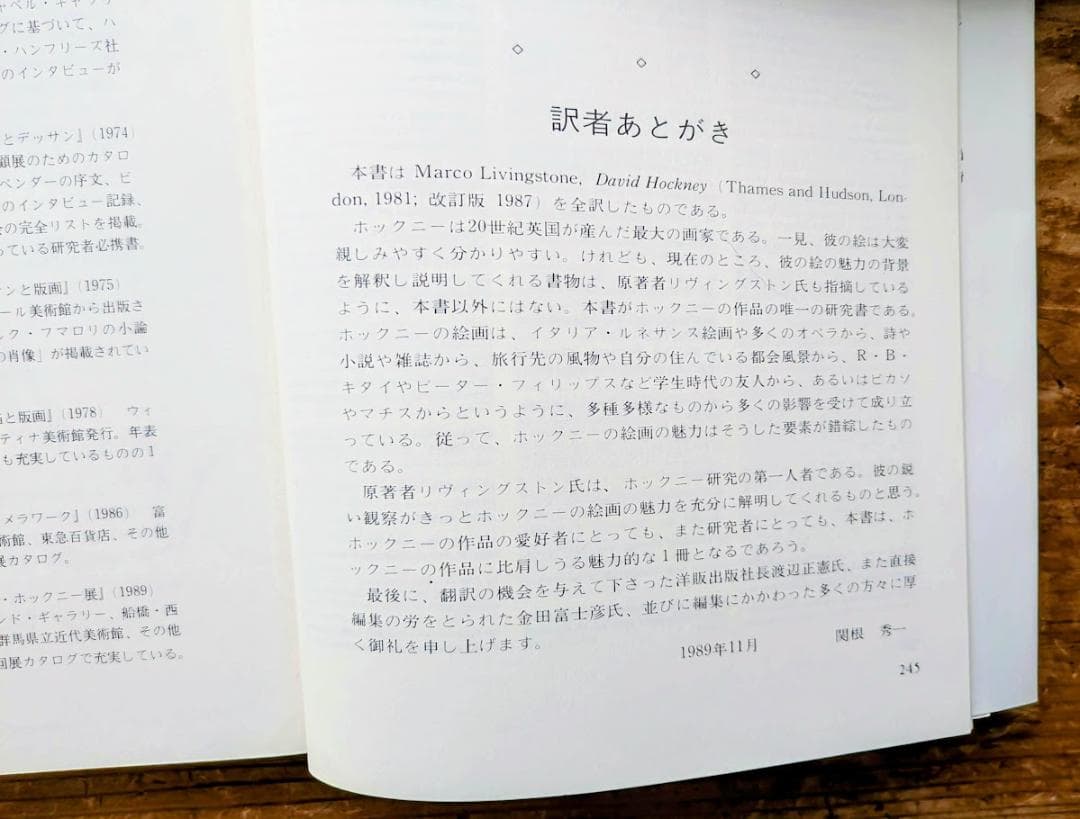 に基づいて、ハ
・ハンフリーズ社
のインタビューが
とデッサン』(1974)
顧展のためのカタロ
ペンダーの序文、ビ
のインタビュー記録、
の完全リストを掲載。
っている研究者必携書。
ンと版画』(1975)
ール美術館から出版さ
ルク・フマロリの小論
の肖像」が掲載されてい
と版画』(1978) ウィ
ティナ美術館発行。年表
も充実しているものの1
メラワーク』(1986) 富
術館、東急百貨店、その他
展カタログ。
・ホックニー展』(1989)
ンド・ギャラリー、船橋・西
群馬県立近代美術館、その他
回展カタログで充実している。
訳者あとがき
本書は Marco Livingstone, David Hockney (Thames and Hudson, Lon-
don, 1981; 改訂版 1987) を全訳したものである。
ホックニーは20世紀英国が産んだ最大の画家である。一見、彼の絵は大変
親しみやすく分かりやすい。けれども、現在のところ、彼の絵の魅力の背景
を解釈し説明してくれる書物は、原著者リヴィングストン氏も指摘している
ように、本書以外にはない。本書がホックニーの作品の唯一の研究書である。
ホックニーの絵画は、イタリア・ルネサンス絵画や多くのオペラから、詩や
小説や雑誌から、旅行先の風物や自分の住んでいる都会風景から、R・B・
キタイやピーター・フィリップスなど学生時代の友人から、あるいはピカソ
やマチスからというように、多種多様なものから多くの影響を受けて成り立
っている。従って、ホックニーの絵画の魅力はそうした要素が錯綜したもの
である。
原著者リヴィングストン氏は、ホックニー研究の第一人者である。彼の鋭
い観察がきっとホックニーの絵画の魅力を充分に解明してくれるものと思う。
ホックニーの作品の愛好者にとっても、また研究者にとっても、本書は、ホ
ックニーの作品に比肩しうる魅力的な1冊となるであろう。
最後に、翻訳の機会を与えて下さった洋販出版社長渡辺正憲氏、また直接
編集の労をとられた金田富士彦氏、並びに編集にかかわった多くの方々に厚
く御礼を申し上げます。
1989年11月 関根 秀一
245